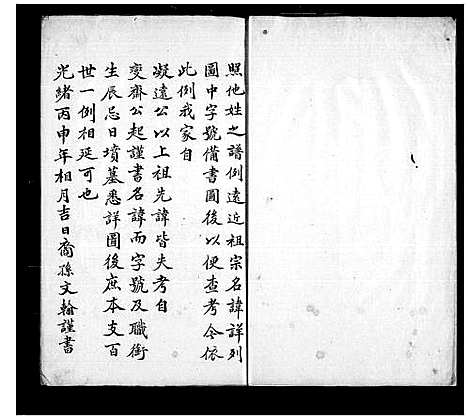 照他姓之譜例遠近祖宗名諱詳列
圖中字號備書圖後以便查考今依
此例我家自
凝遠公以上祖先諱皆失考自
變齋公起謹書名諱而字號及職銜
生辰忌日墳墓悉詳圖後庶本支百
世一例相延可也
光緒丙申年相月吉日裔孫文翰謹書